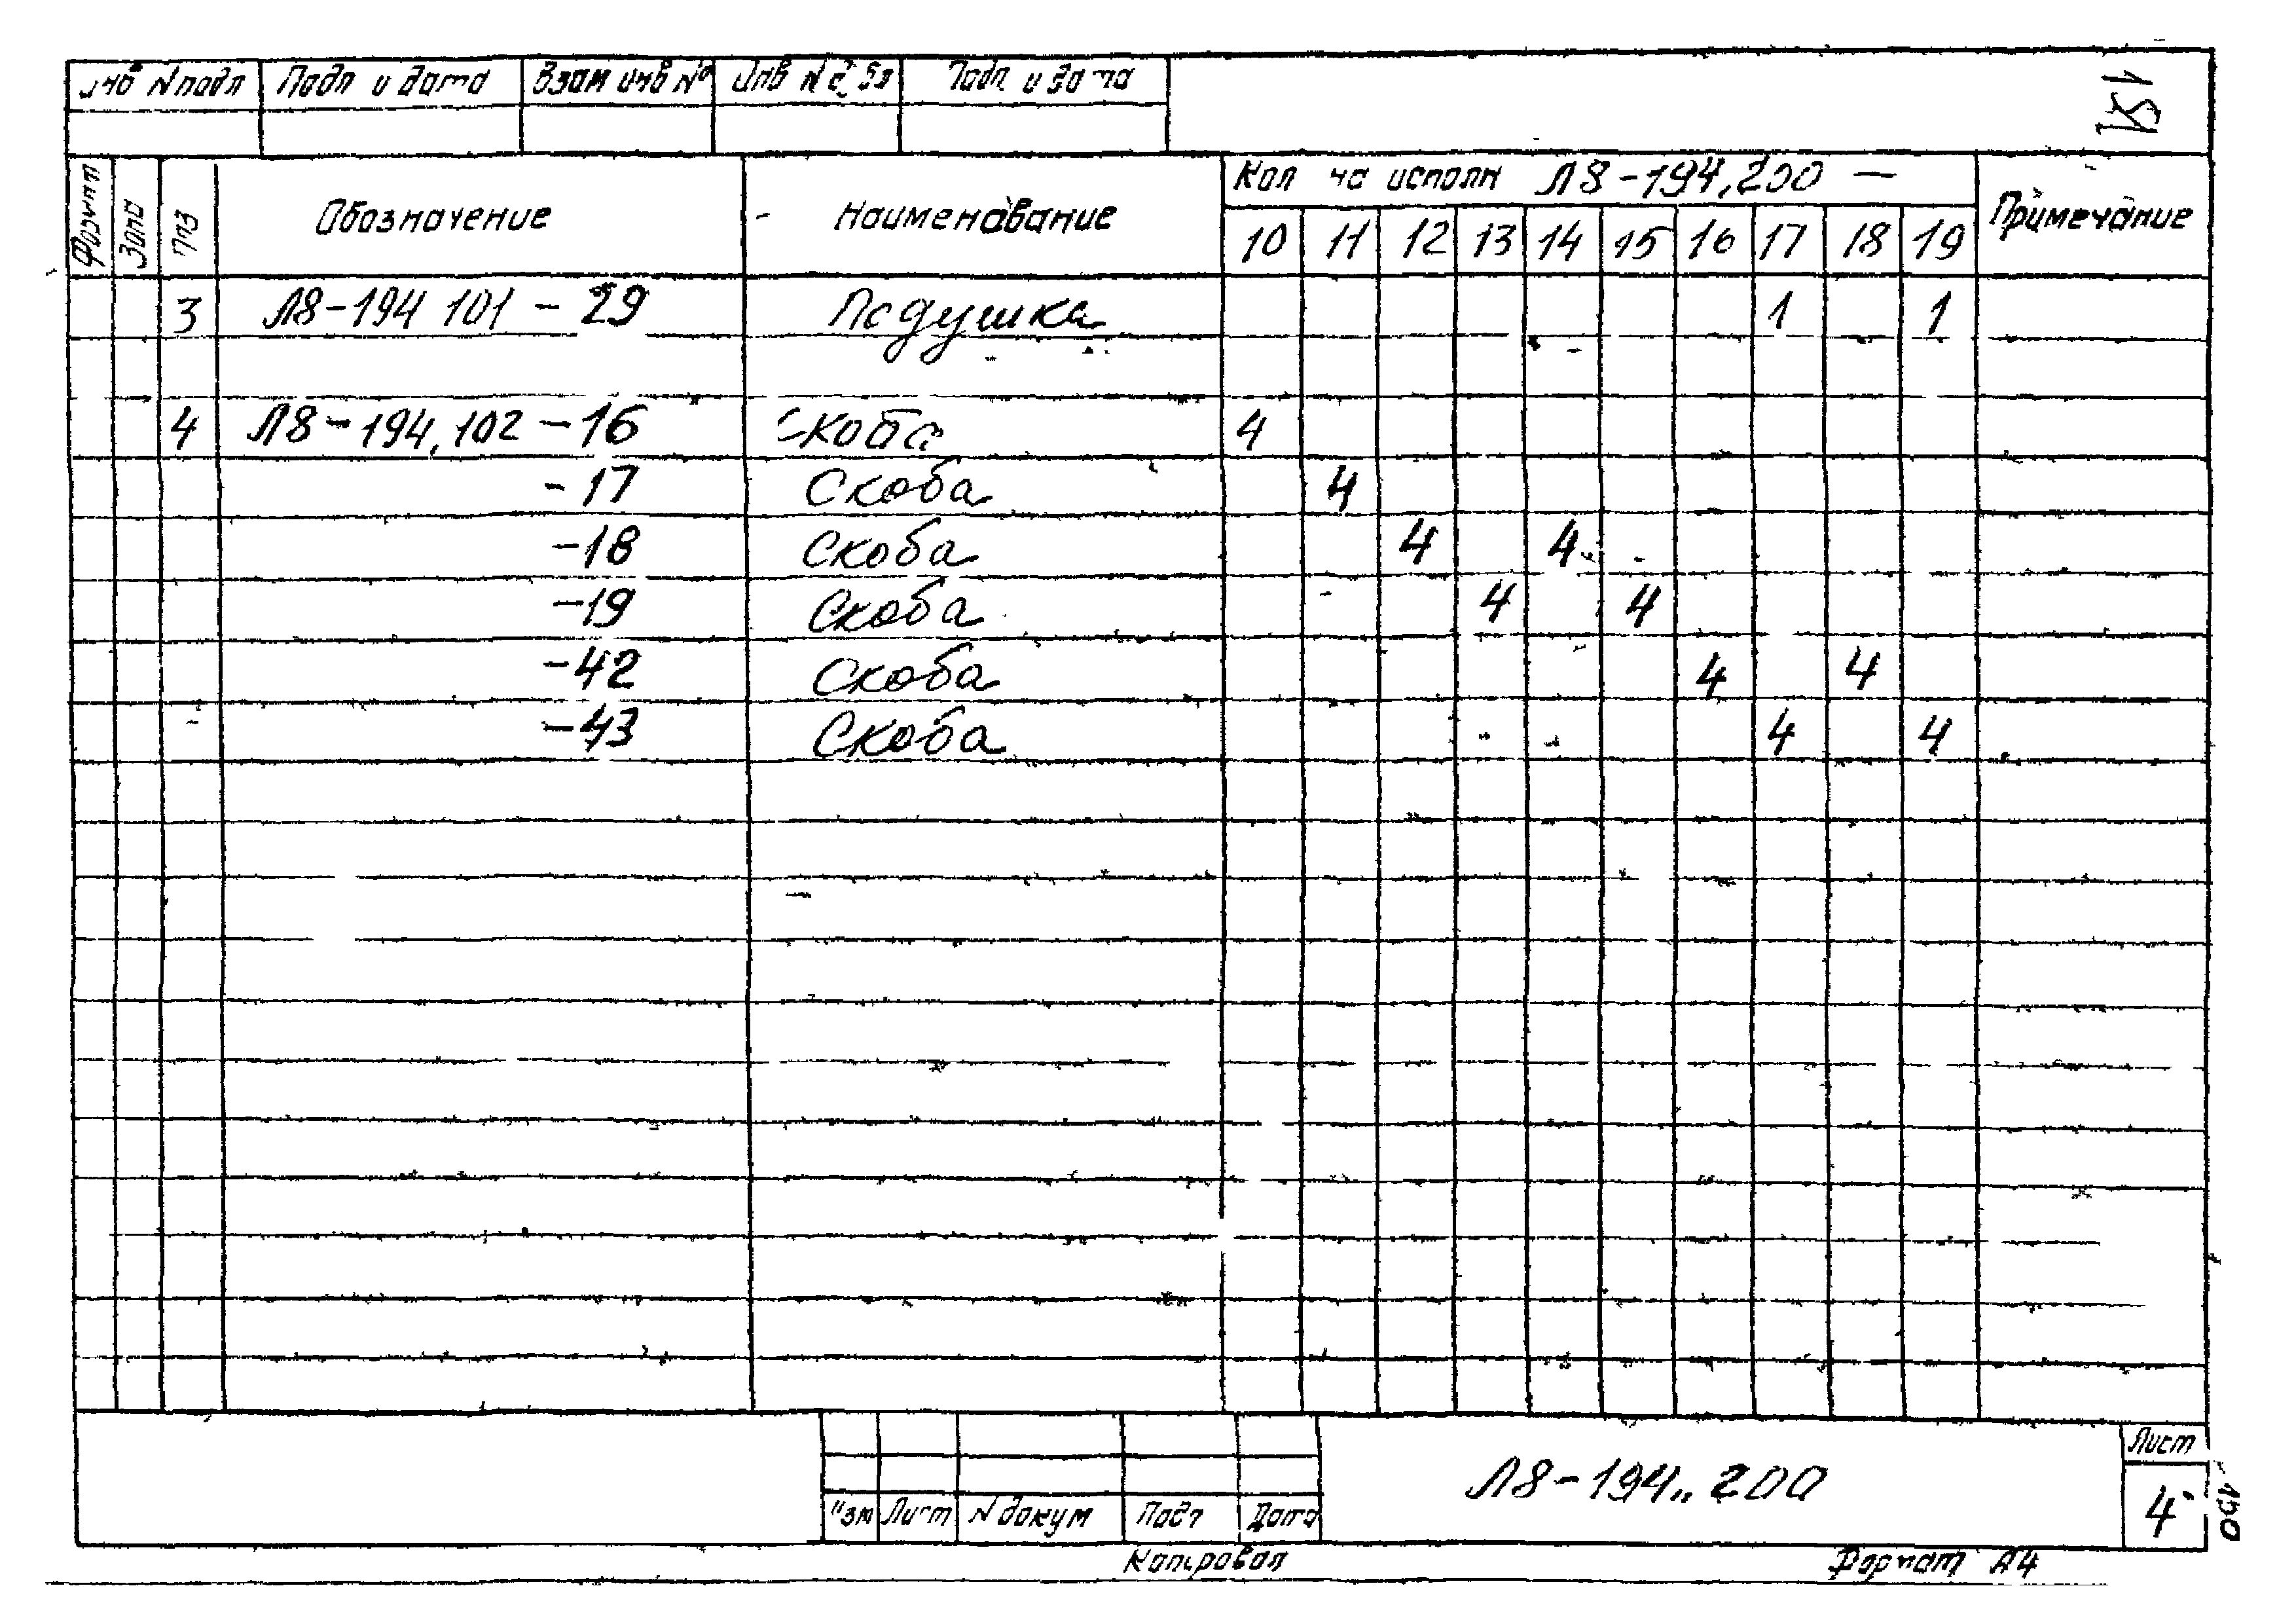 Инв N подл Подп и дата Взам инв № Инв N дубл Подп и дата
151
Формат Зона Поз Обозначение Наименование Кол на исполн Л8-194.200 — Примечание
10 11 12 13 14 15 16 17 18 19
3 Л8-194 101 - 29 Подушка 1 1
4 Л8-194.102 -16 Скоба 4
-17 Скоба 4
-18 Скоба 4 4
-19 Скоба 4 4
-42 Скоба 4 4
-43 Скоба 4 4
Л8-194.200
Лист
4
Изм Лист N докум Подп Дата
Копировал Формат А4